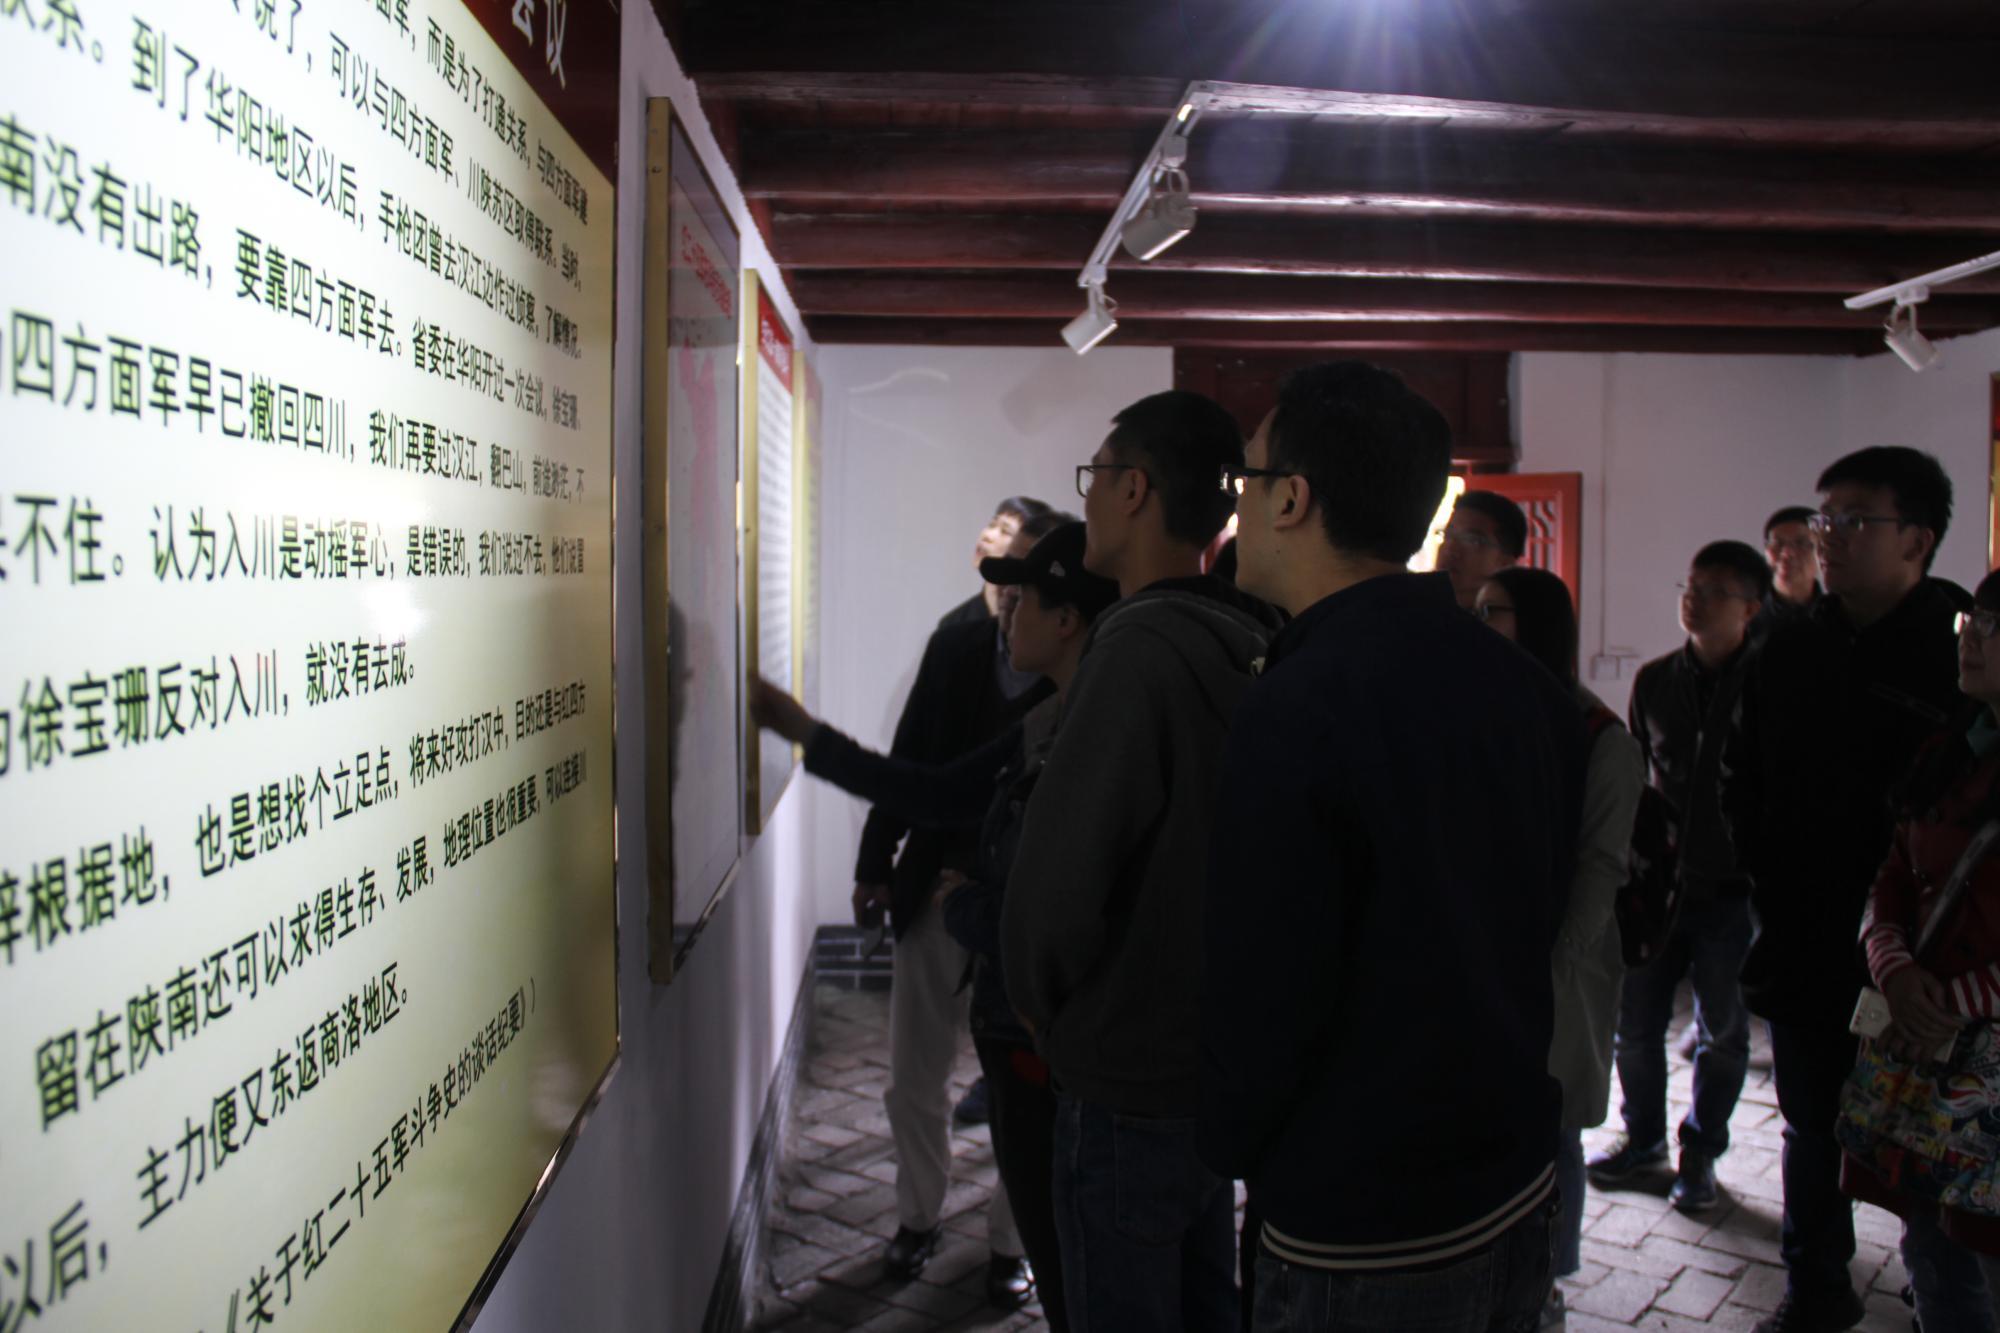 会议
面军，而是为了打通关系，与四方面军建
联系。到了华阳地区以后，手枪团曾去汉江边作过侦察，了解情况。
说了，可以与四方面军、川陕苏区取得联系。当时，
南没有出路，要靠四方面军去。省委在华阳开过一次会议，徐宝珊、
四方面军早已撤回四川，我们再要过汉江，翻巴山，前途渺茫，不
不住。认为入川是动摇军心，是错误的，我们说过不去，他们说置
的徐宝珊反对入川，就没有去成。
辟根据地，也是想找个立足点，将来好攻打汉中，目的还是与红四方
留在陕南还可以求得生存、发展，地理位置也很重要，可以连接川
以后，主力便又东返商洛地区。
《关于红二十五军斗争史的谈话纪要》）